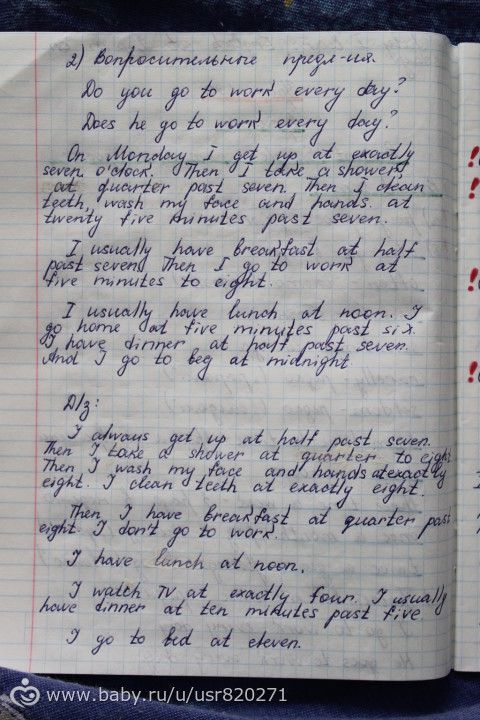 2) Вопросительные предл-ия.
Do you go to work every day?
Does he go to work every day?
On Monday I get up at exactly
seven o'clock. Then I take a shower
at quarter past seven. Then I clean
teeth, wash my face and hands. at
twenty five minutes past seven.
I usually have breakfast at half
past seven. Then I go to work at
five minutes to eight.
I usually have lunch at noon. I
go home at five minutes past six.
I have dinner at half past seven.
And I go to beg at midnight.
D/з:
I always get up at half past seven.
Then I take a shower at quarter to eight
Then I wash my face and hands at exactly
eight. I clean teeth at exactly eight.
Then I have breakfast at quarter past
eight. I don't go to work.
I have lunch at noon.
I watch TV at exactly four. I usually
have dinner at ten minutes past five
I go to bed at eleven.
www.baby.ru/u/usr820271